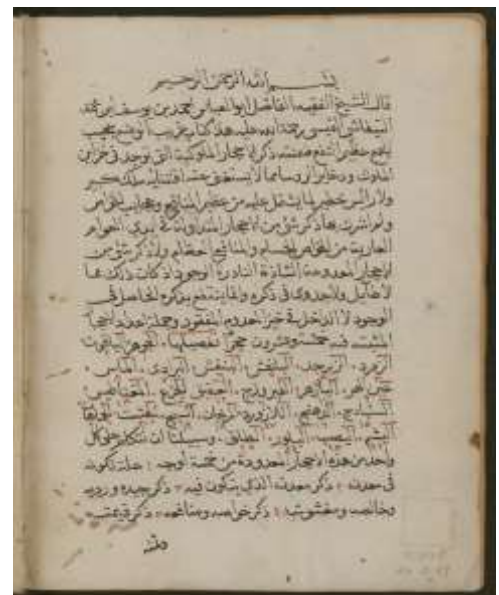 بسم الله الرحمن الرحيم
قال الشيخ الفقيه الفاضل ابو العباس احمد بن يوسف ابن محمد
التيفاشى القيسى رحمة الله عليه هذا كتاب غريب الوضع عجيب
الجمع عظيم النفع ضمنته ذكر الاحجار الملوكية التى توجد فى خزاين
الملوك وذخاير الروسا مما لا يستغنى عنه اقتنايه ملك كبير
ولا رئيس خطير لما يشتمل عليه من عظيم المنافع وعجايب
ولم اشرت ها ذكر شى من الاحجار المتداولة فى يدى العوام
العارية من الخواص الجسام والمنافع العظام ولا ذكر شى من
الاحجار المعدومة الشاذة النادرة الوجود اذ كان ذلك مما
لا طايل ولا جدوى فى ذكره وانما ينتفع بذكره الحاصل فى
الوجود لا الداخل فى حيز المعدوم المفقود وجملة عدد احجار
المثبتة فيه خمسة وعشرون حجرا تفصيلها الجوهر الياقوت
الزمرد الزبرجد البلخش البنفش البجادى الماس
عين الهر البازهر الفيروزج العقيق الجزع المغناطيس
السنباذج الدهنج اللازورد المرجان السبج الجمشت الخماهن
اليشم اليصب البلور الطلق وسبيلنا ان نتكلم على كل
واحد من هذه الاحجار المعدودة من خمسة اوجه علة تكونه
فى معدنه ذكر معدنه الذى يتكون فيه ذكر جيده ورديه
وخالصه ومغشوشه ذكر خواصه ومنافعه ذكر قيمته